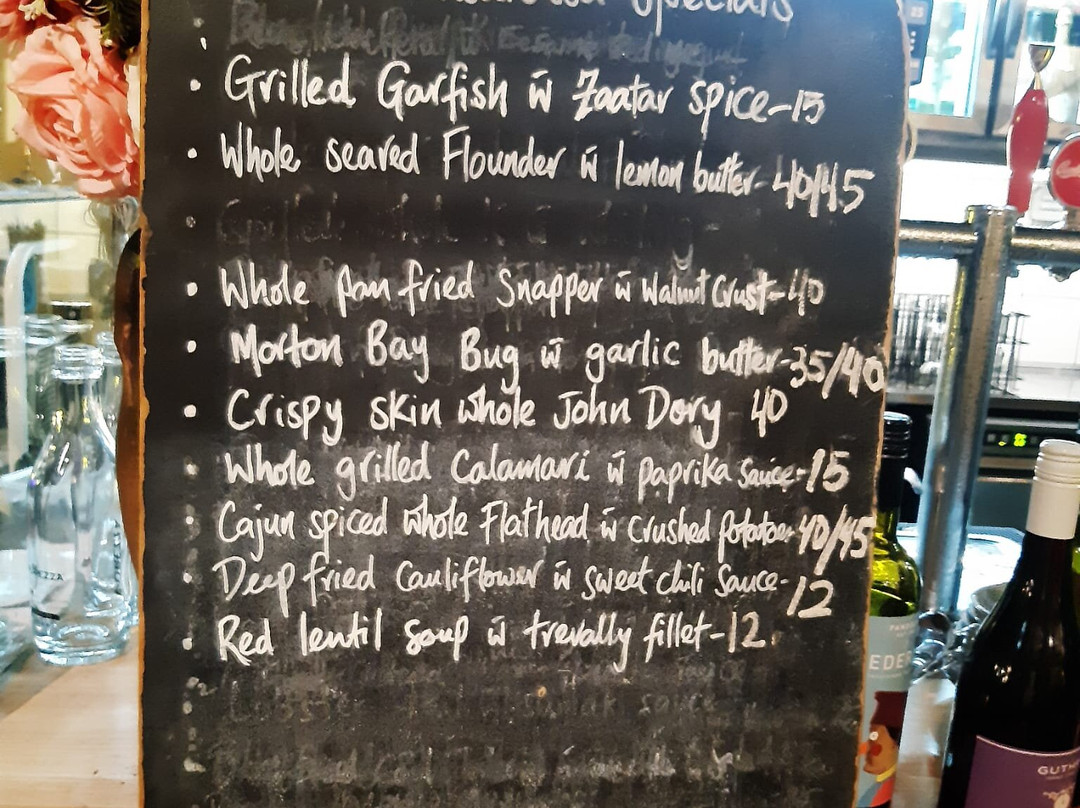 Specials
• Grilled Garfish w̄ Zaatar spice-15
• Whole seared Flounder w̄ lemon butter-40/45
• Whole pan fried Snapper w̄ Walnut Crust-40
• Morton Bay Bug w̄ garlic butter-35/40
• Crispy skin whole John Dory 40
• Whole grilled Calamari w̄ paprika sauce-15
• Cajun spiced whole Flathead w̄ crushed potatoes-40/45
• Deep fried Cauliflower w̄ sweet chili sauce-12
• Red lentil soup w̄ trevally fillet-12.
EDEN